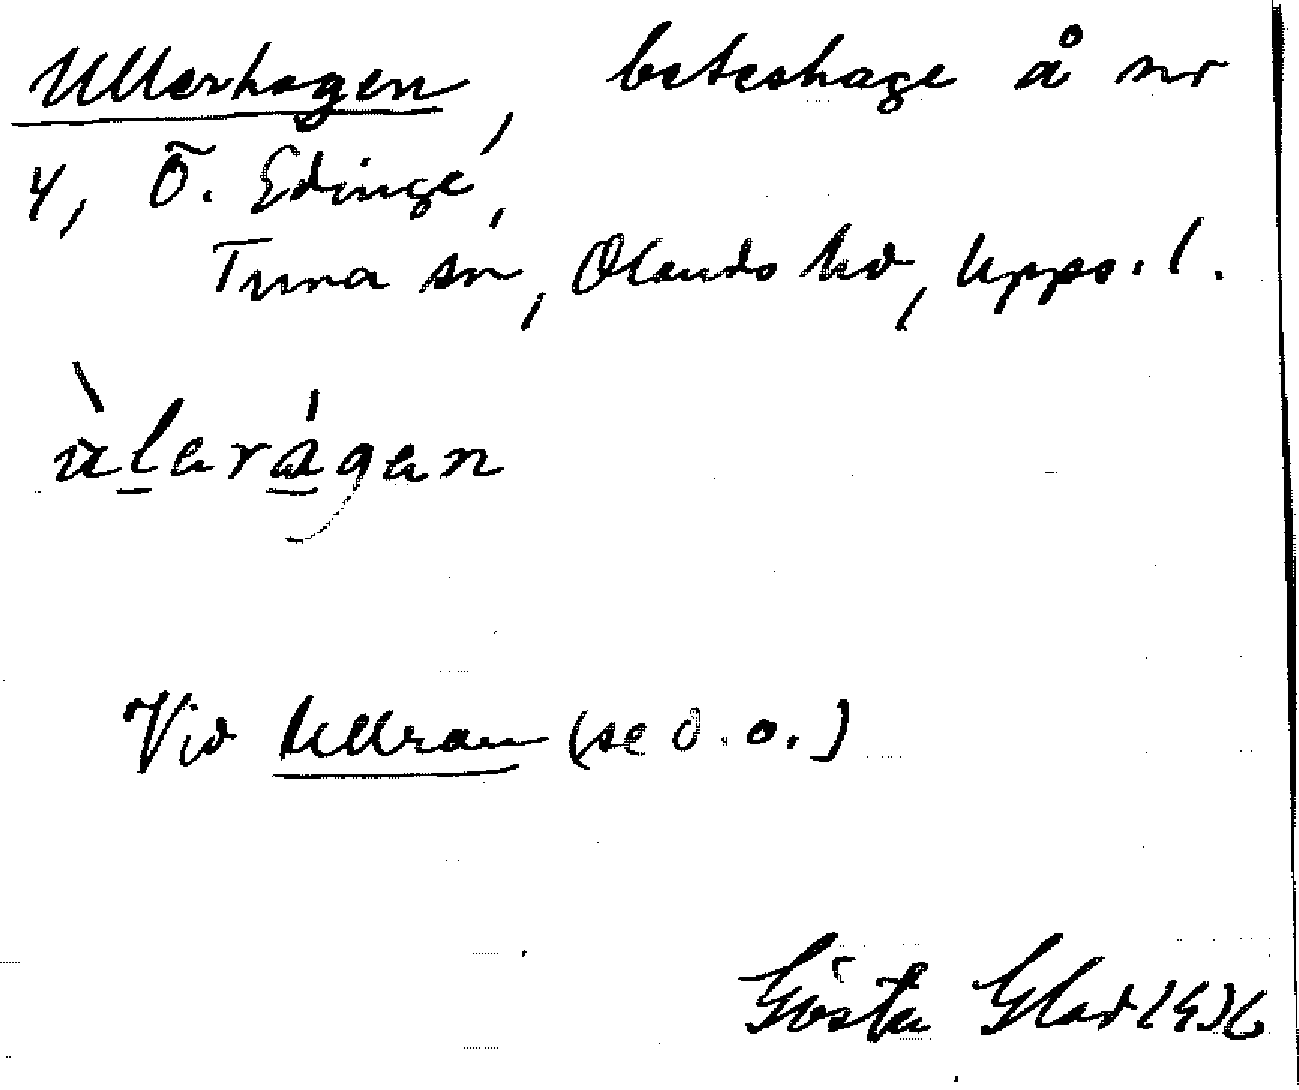 Ullerhagen, beteshage å nr
4, Ö. Edinge,
Tuna sn, Olands hd, Upps. l.
ùlerágen
Vid Ullran (se d. o.)
Gösta Glad 1936